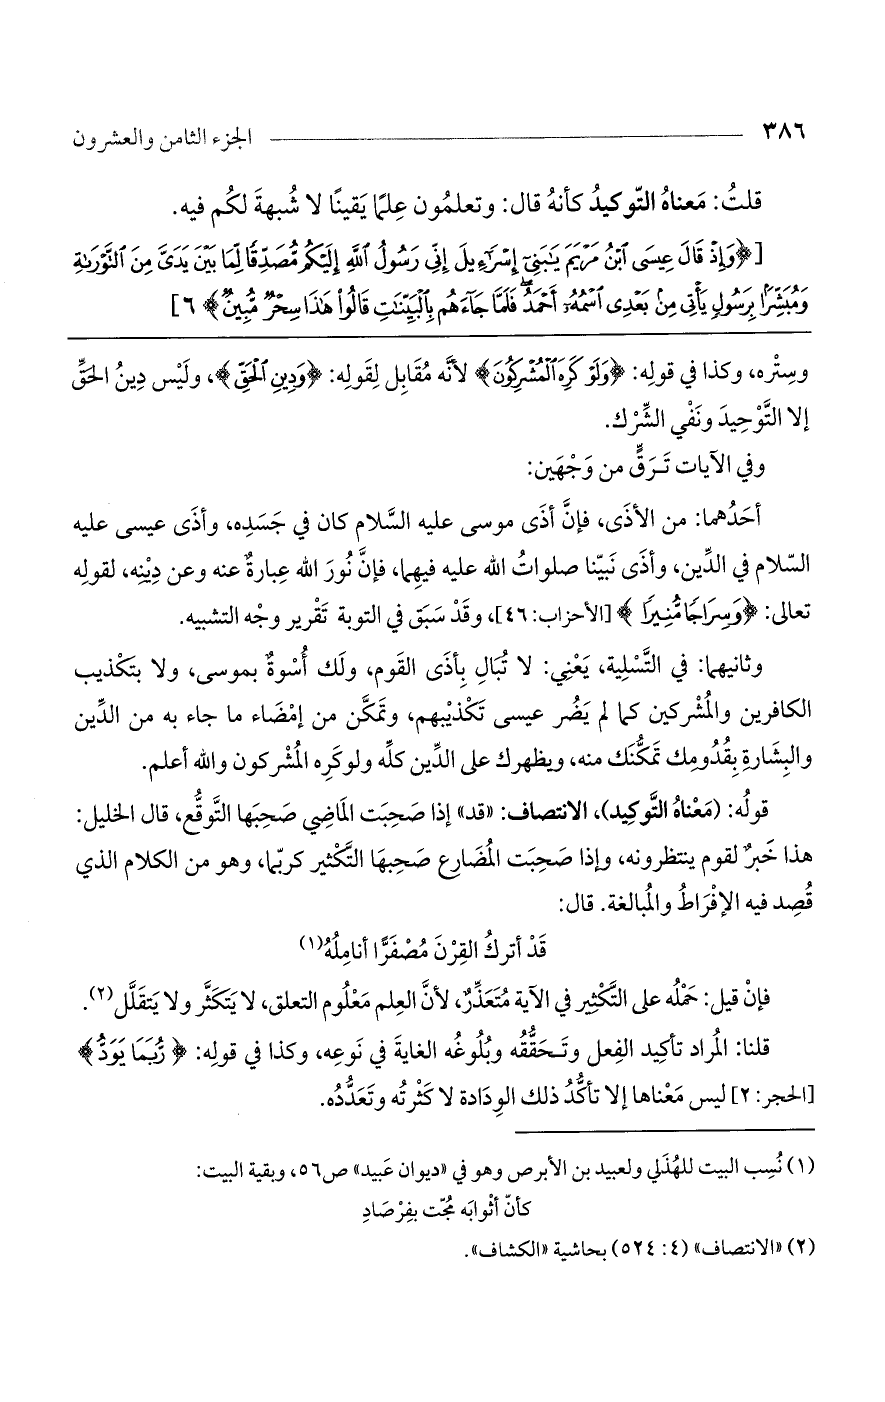 ٣٨٦ ــــــــــــــــ الجزء الثامن والعشرون
قلتُ: مَعناهُ التّوكيدُ كأنهُ قال: وتعلمُون عِلمًا يَقينًا لا شُبهةَ لكُم فيه.
[﴿وَإِذْ قَالَ عِيسَى ٱبْنُ مَرْيَمَ يَٰبَنِىٓ إِسْرَٰٓءِيلَ إِنِّى رَسُولُ ٱللَّهِ إِلَيْكُم مُّصَدِّقًا لِّمَا بَيْنَ يَدَىَّ مِنَ ٱلتَّوْرَىٰةِ
وَمُبَشِّرًۢا بِرَسُولٍ يَأْتِى مِنۢ بَعْدِى ٱسْمُهُۥٓ أَحْمَدُ ۖ فَلَمَّا جَآءَهُم بِٱلْبَيِّنَٰتِ قَالُوا۟ هَٰذَا سِحْرٌ مُّبِينٌ﴾ ٦]
وستْره، وكذا في قولِه: ﴿وَلَوْ كَرِهَ ٱلْمُشْرِكُونَ﴾ لأنَّه مُقَابِل لِقَولِه: ﴿وَدِينِ ٱلْحَقِّ﴾، ولَيْس دِينُ الحَقِّ
إلا التَّوْحِيدَ ونَفْي الشِّرْك.
وفي الآيات تَرَقٍّ من وَجْهَين:
أحَدُهما: من الأذَى، فإنَّ أذَى موسى عليه السَّلام كان في جَسَدِه، وأذَى عيسى عليه
السّلام في الدِّين، وأذَى نَبيّنا صلواتُ الله عليه فيهِما، فإنَّ نُورَ الله عِبارةٌ عنه وعن دِيْنِه، لقولِه
تعالى: ﴿وَسِرَاجًا مُّنِيرًا﴾ [الأحزاب: ٤٦]، وقَدْ سَبَق في التوبة تَقْرير وجْه التشبيه.
وثانيهما: في التَّسْلِية، يَعْنِي: لا تُبَالِ بِأذَى القَوم، ولَك أُسْوةٌ بموسى، ولا بتكْذيب
الكافرين والمُشْركين كما لم يَضُر عيسى تَكْذيْبهم، وتمكَّن من إمْضَاء ما جاء به من الدِّين
والبِشَارةِ بِقُدُومِك تمكُّنَك منه، ويظهرك على الدِّين كلِّه ولوكَره المُشْركون والله أعلم.
قولُه: (مَعْناهُ التَّوكِيد)، الانتصاف: «قد» إذا صَحِبَت المَاضِي صَحِبَها التَّوقُّع، قال الخليل:
هذا خَبرٌ لقوم ينتظرونه، وإذا صَحِبَت المُضَارع صَحِبهَا التَّكْثير كربّما، وهو من الكلام الذي
قُصِد فيه الإفْرَاطُ والمُبالغة. قال:
قَدْ أتركُ القِرْنَ مُصْفَرًّا أنامِلُهُ(١)
فإنْ قيل: حَمْلُه على التَّكْثِير في الآية مُتَعَذِّرٌ، لأنَّ العِلم مَعْلُوم التعلق، لا يَتَكَثَّر ولا يَتقَلَّل(٢).
قلنا: المُراد تأكِيد الفِعل وتَحَقُّقُه وبُلُوغُه الغايةَ في نَوعِه، وكذا في قولِه: ﴿رُّبَمَا يَوَدُّ﴾
[الحجر: ٢] ليس مَعْناها إلا تأكُّدُ ذلك الوِدَادة لا كَثْرتُه وتَعَدُّدُه.
(١) نُسِب البيت للهُذَلي ولعبيد بن الأبرص وهو في «ديوان عَبيد» ص٥٦، وبقية البيت:
كأنّ أثْوابَه مُجّت بفِرْصَادِ
(٢) «الانتصاف» (٤: ٥٢٤) بحاشية «الكشاف».